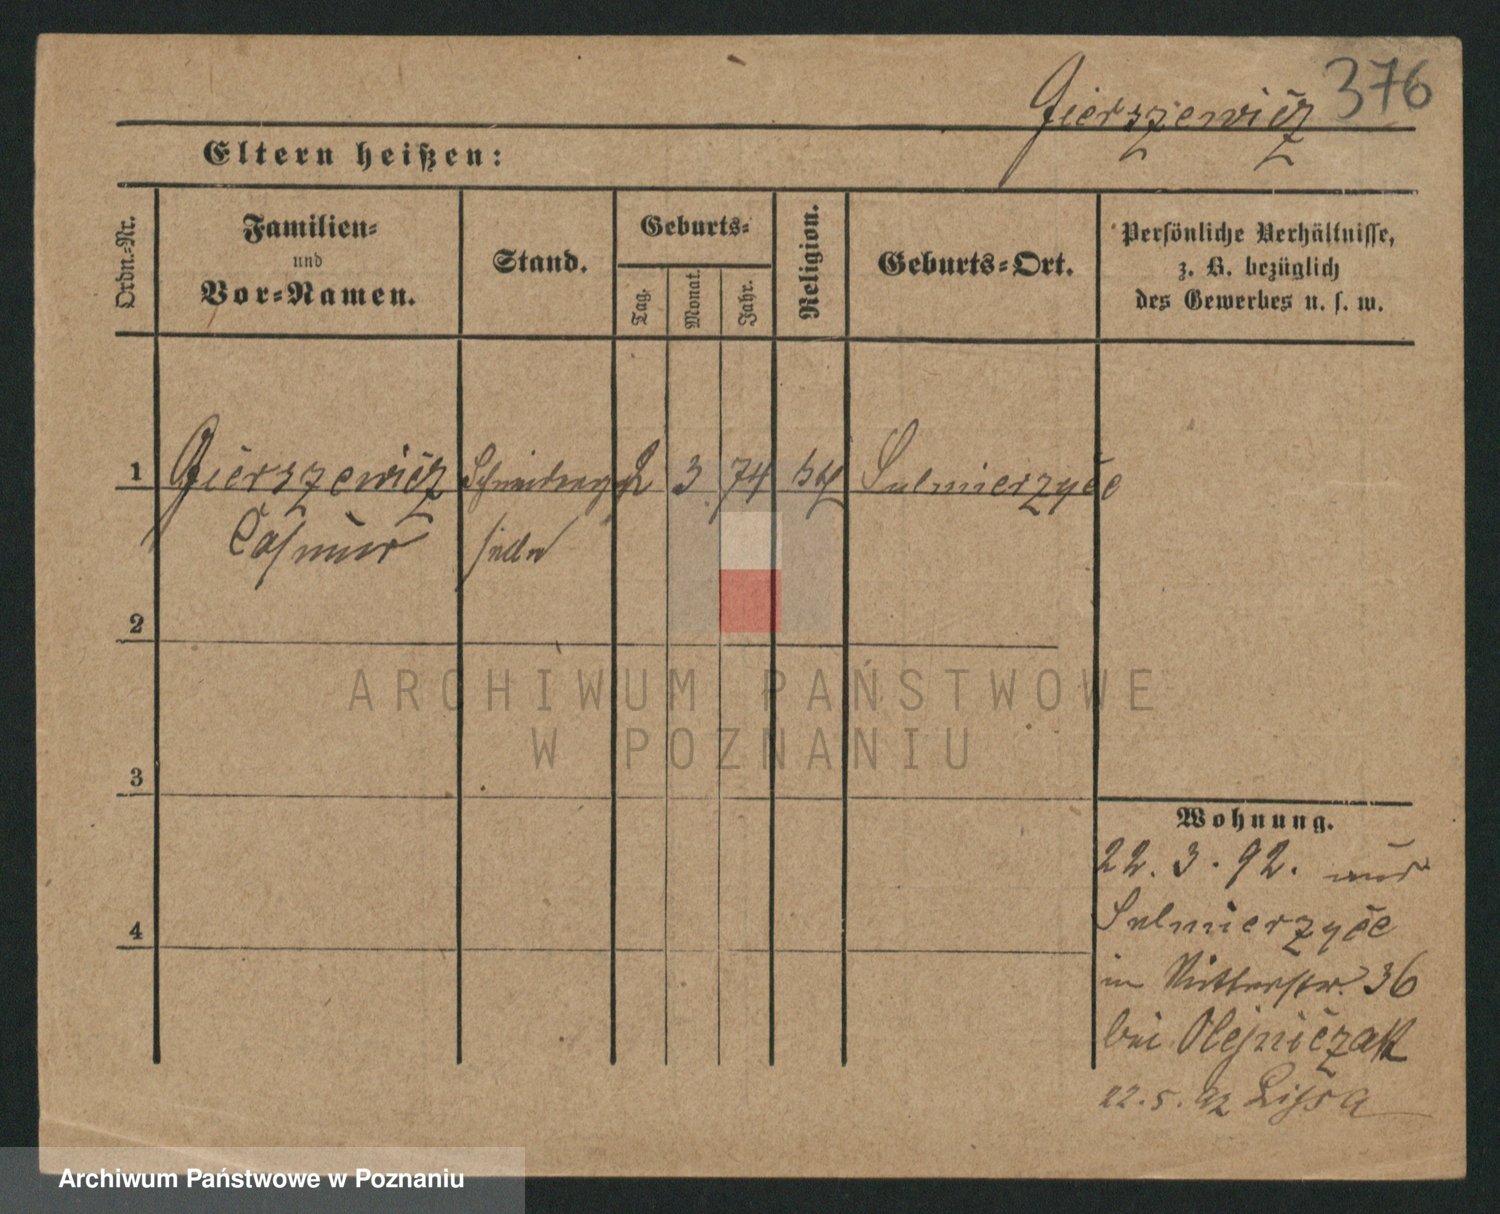 376
Gierszewicz
Eltern heißen:
Ordn.-Nr.
Familien-
und
Vor-Namen.
Stand.
Geburts-
Tag.
Monat.
Jahr.
Religion.
Geburts-Ort.
Persönliche Verhältnisse,
z. B. bezüglich
des Gewerbes u. s. w.
1 Gierszewicz Schneiderge 2 3 74 kth Sulmierzyce
Casimir selle
2
3
4
Wohnung.
22. 3. 92. aus
Sulmierzyce
in Ritterstr. 36
bei Olejniczak
22. 5. 92 Lissa
ARCHIWUM PAŃSTWOWE
W POZNANIU
Archiwum Państwowe w Poznaniu